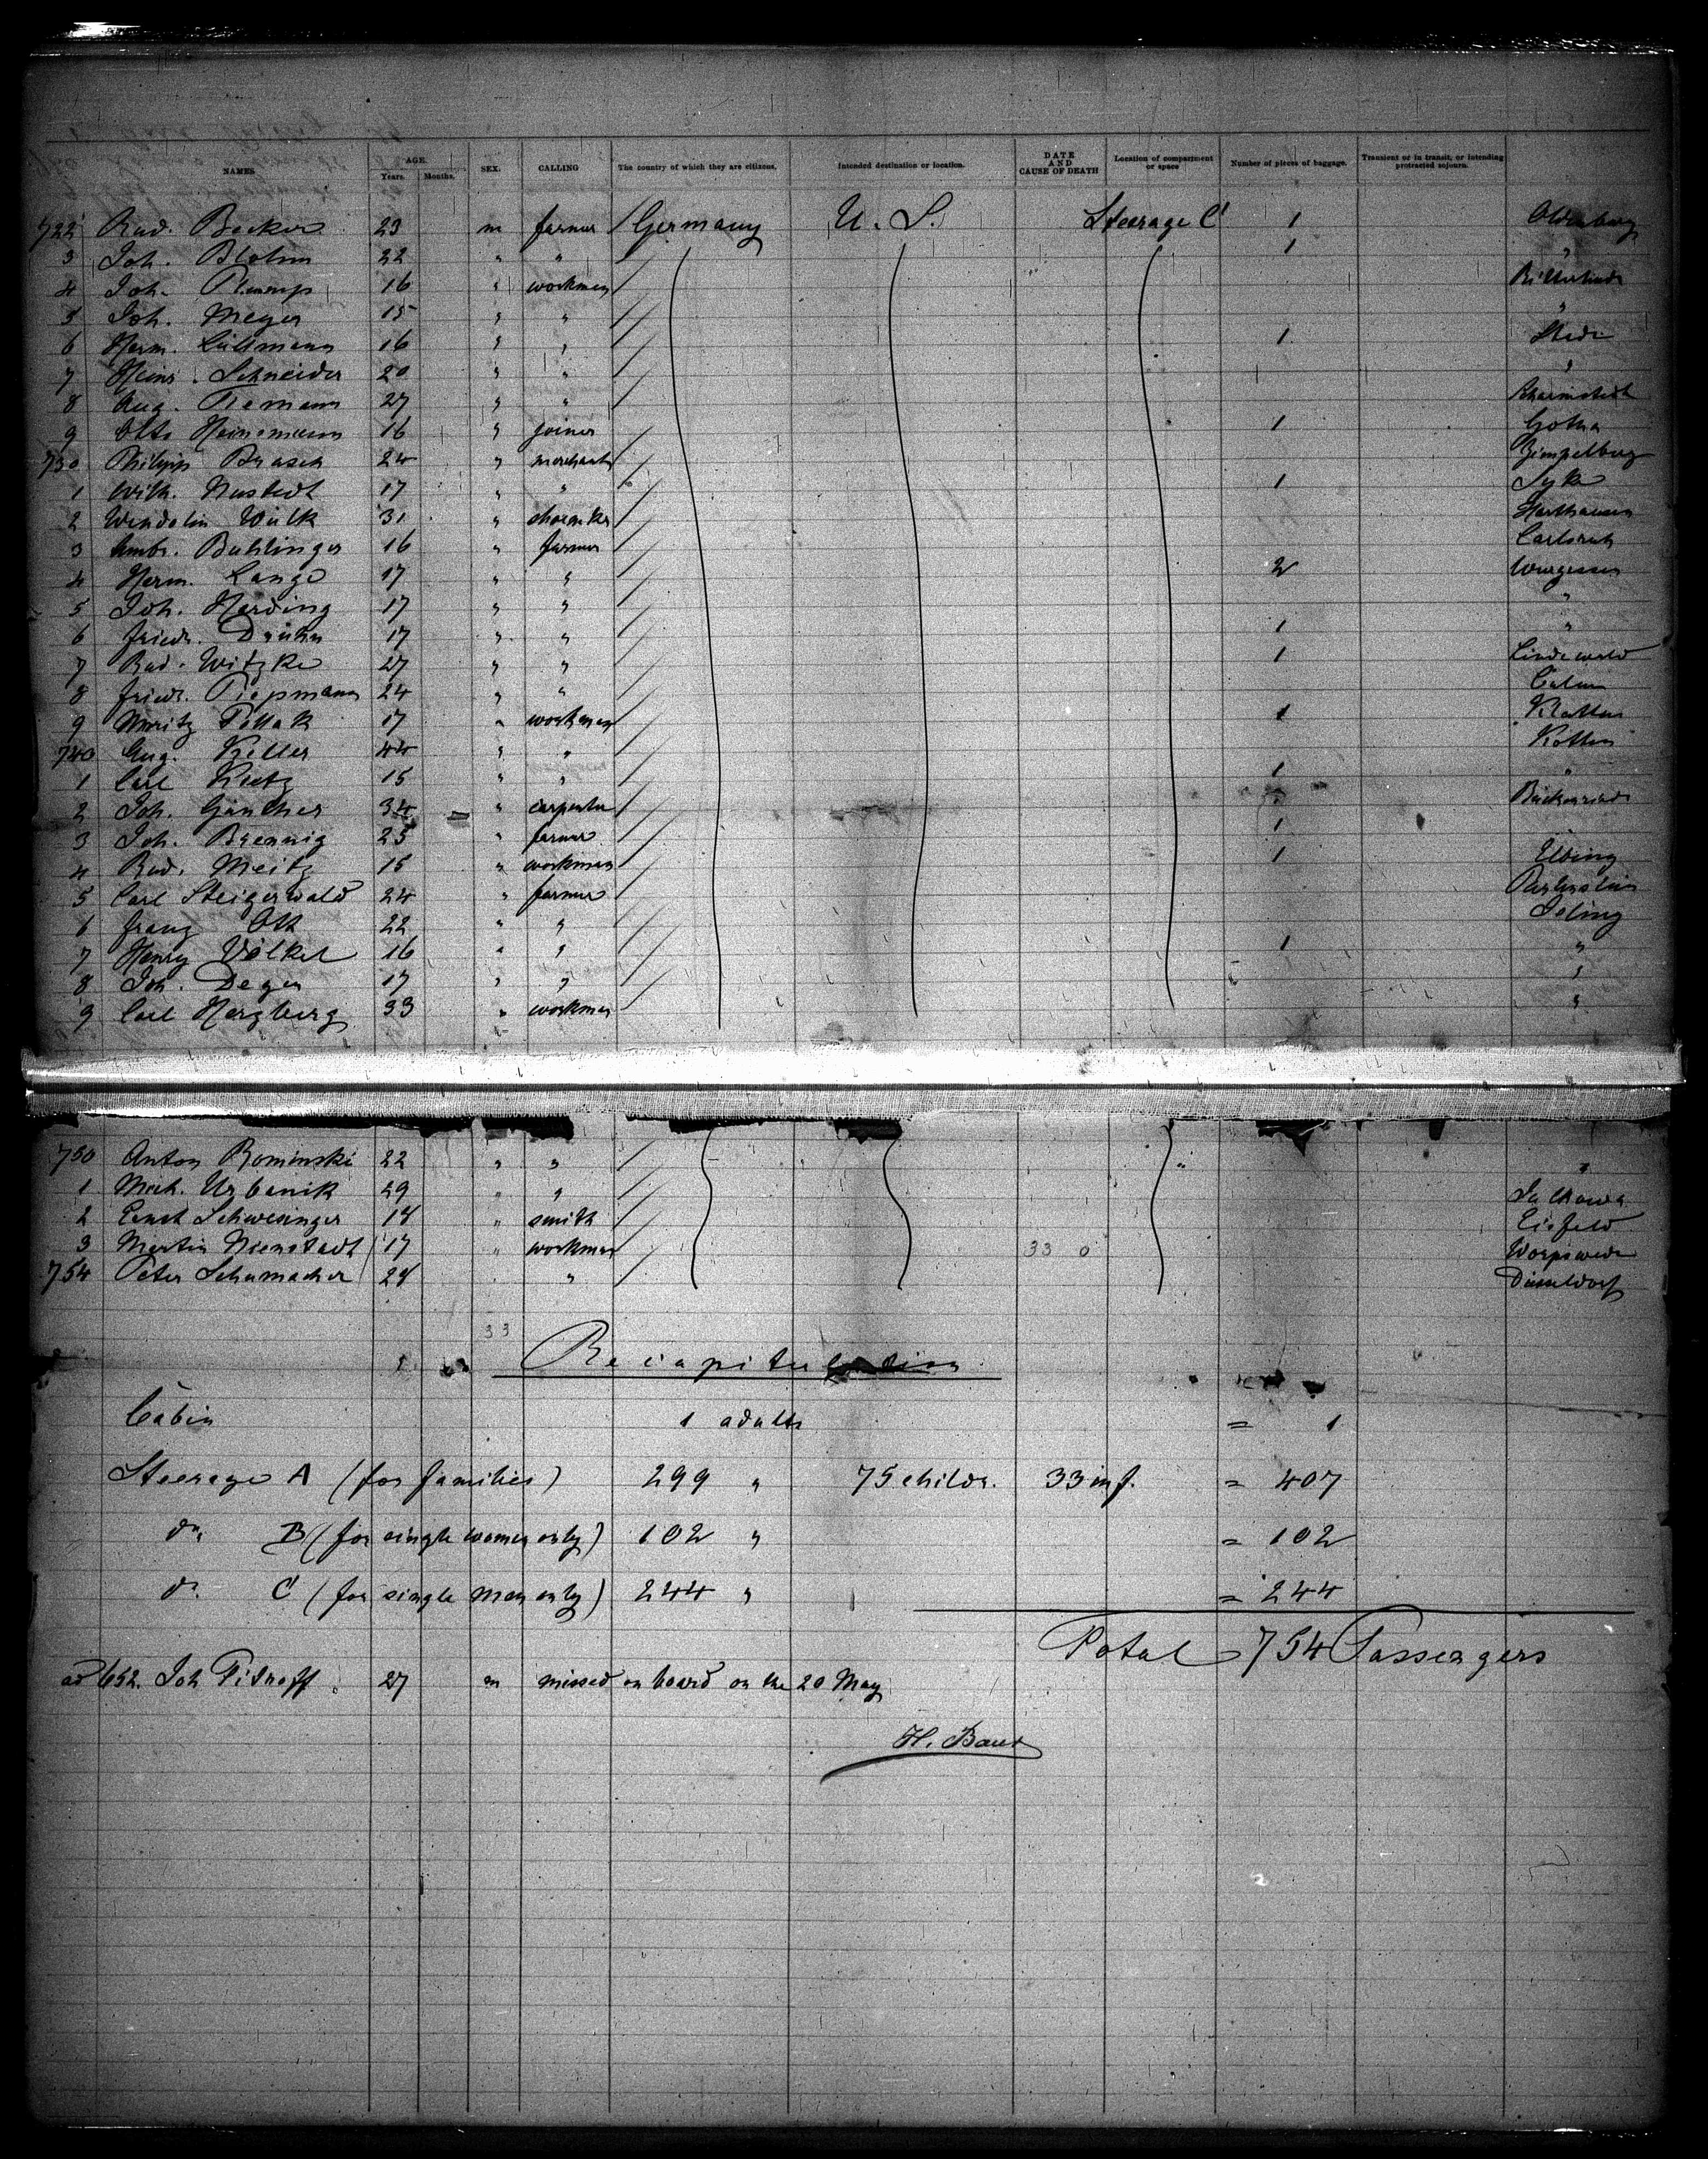 NAMES AGE. Years. Months. SEX. CALLING The country of which they are citizens. Intended destination or location. DATE AND CAUSE OF DEATH Location of compartment or space Number of pieces of baggage. Transient or in transit, or intending protracted sojourn.
722 Rud. Becker 23 m farmer Germany U. S. Steerage C 1 Oldenburg
3 Joh. Blohm 22 " " 1 "
4 Joh. 16 " workman
5 Joh. Meyer 15 " " "
6 Herm. Lüllmann 16 " " 1 Stade
7 Heinr. Schneider 20 " " "
8 Aug. Tiemann 27 " "
9 Otto Heinemann 16 " joiner 1 Gotha
730 Philipp Brasch 24 " merchant
1 Wilh. Nustedt 17 " " 1 Syke
2 Wendolin Wülk 31 " Harthausen
3 Ambr. Buhlinger 16 " farmer Carlsruh
4 Herm. Lange 17 " " 2
5 Joh. Harding 17 " " "
6 Friedr. Drühn 17 " " 1 "
7 Rud. Witzke 27 " " 1 Lindewald
8 Friedr. Piepmann 24 " "
9 Moritz Pollak 17 " workman 1
740 Aug. Keller 44 " "
1 Carl Kietz 15 " " 1 "
2 Joh. Günther 34 " carpenter
3 Joh. Brennig 25 " farmer 1
4 Rud. Meitz 15 " workman 1 Elbing
5 Carl Steigerwald 24 " farmer Partenstein
6 Franz Ott 22 " "
7 Henry Völkel 16 " " 1 "
8 Joh. Deger 17 " " "
9 Carl Herzberg 33 " workman "
750 Anton Rominski 22 " " " "
1 Mich. Urbanik 29 " "
2 Ernst Schwesinger 18 " smith Eisfeld
3 Martin Nienstadt 17 " workman 33 0 Worpswede
754 Peter Schumacher 28 " Düsseldorf
33
Recapitulation
Cabin 1 adults = 1
Steerage A (for families) 299 " 75 childr. 33 inf. = 407
do. B (for single women only) 102 " = 102
do. C (for single men only) 244 " = 244
Total 754 Passengers
ad 652. Joh Pitroff. 27 m missed on board on the 20 May
H. Baur